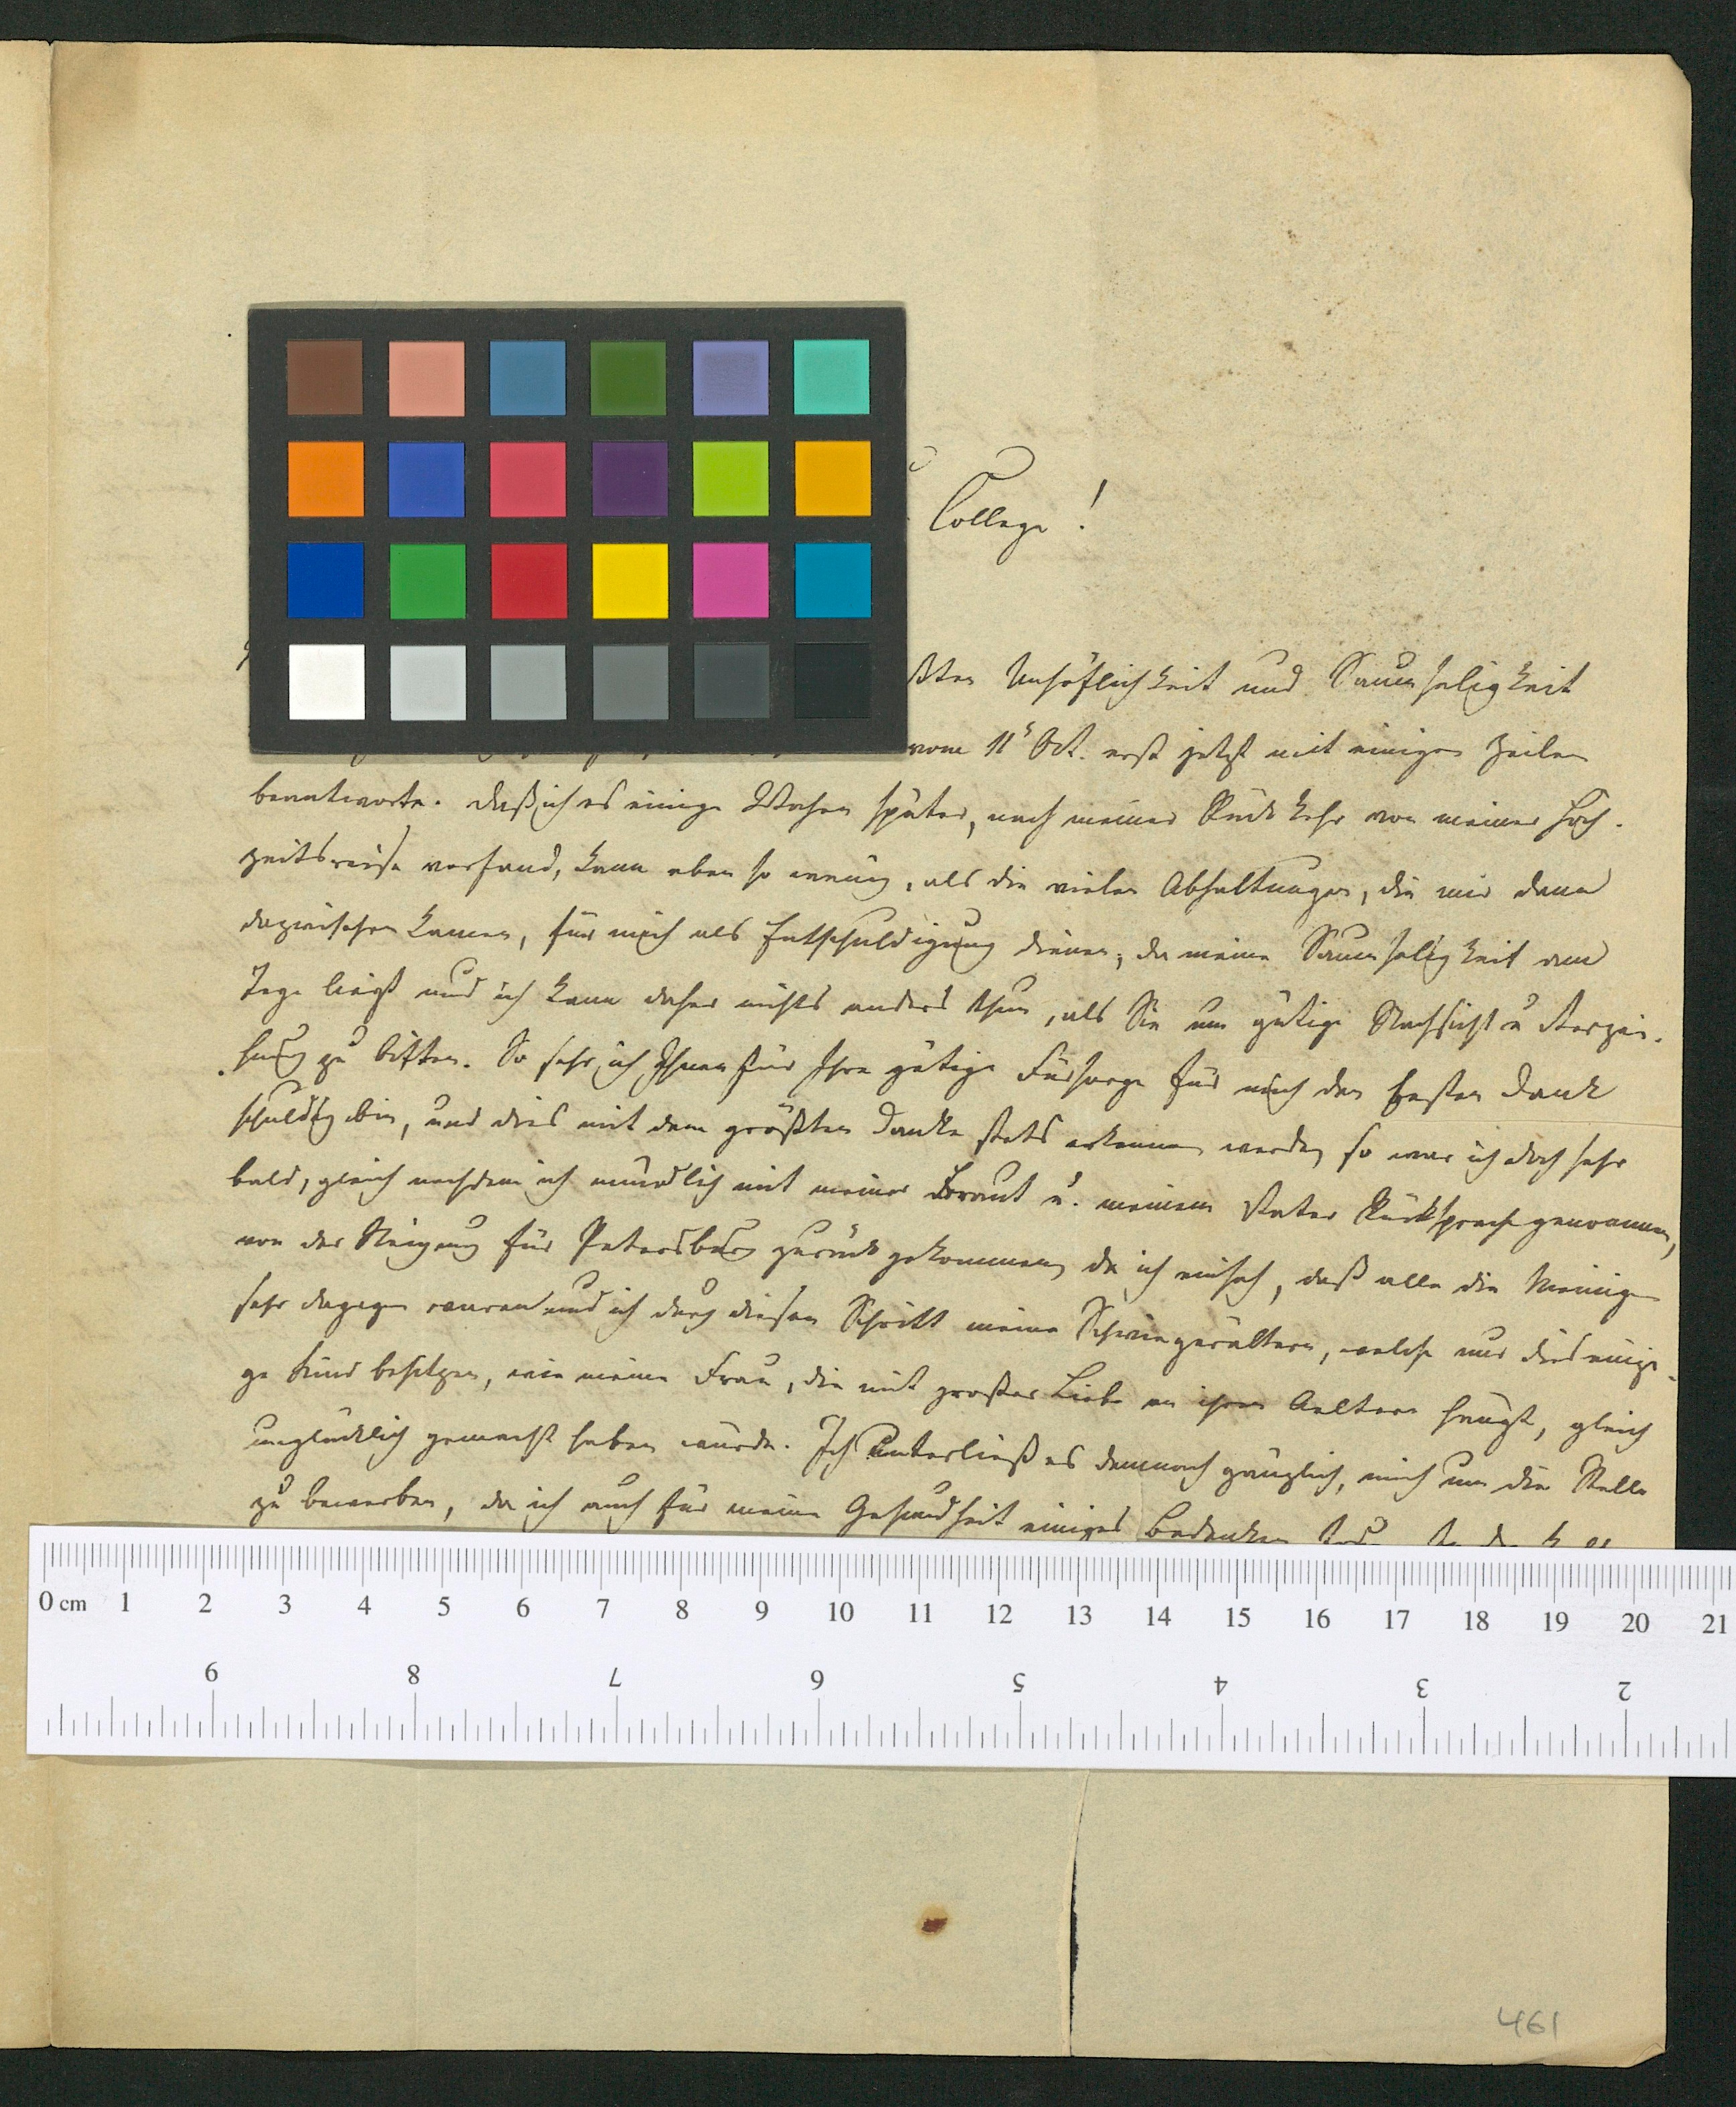 College!
ßten Unhöflichkeit und Saumseligkeit
vom 11ᵗ Oct. erst jetzt mit einigen Zeilen
beantworte. Daß ich es einige Wochen später, nach meiner Rückkehr von meiner Hoch-
zeitsreise vorfand, kann eben so wenig, als die vielen Abhaltungen, die mir dann
dazwischen kamen, für mich als Entschuldigung dienen; da meine Saumseligkeit am
Tage liegt und ich kann daher nichts anders thun, als Sie um gütige Nachsicht u Verzei-
hung zu bitten. So sehr ich Ihnen für Ihre gütige Fürsorge für mich den besten Dank
schuldig bin, und dies mit dem größten Danke stets erkennen werde, so war ich doch sehr
bald, gleich nachdem ich mündlich mit meiner Braut u. meinem Vater Rücksprache genommen,
von der Neigung für Petersburg zurückgekommen, da ich einsah, daß alle die Meinigen
sehr dagegen waren und ich durch diesen Schritt meine Schwiegerältern, welche nur dies einzi-
ge Kind besitzen, wie meine Frau, die mit großer Liebe an ihren Aeltern hängt, gleich
unglücklich gemacht haben würde. Ich unterließ es demnach gänzlich, mich um die Stelle
zu bewerben, da ich auch für meine Gesundheit einiges Bedenken
0 cm 1 2 3 4 5 6 7 8 9 10 11 12 13 14 15 16 17 18 19 20 21
9 8 7 6 5 4 3 2
461